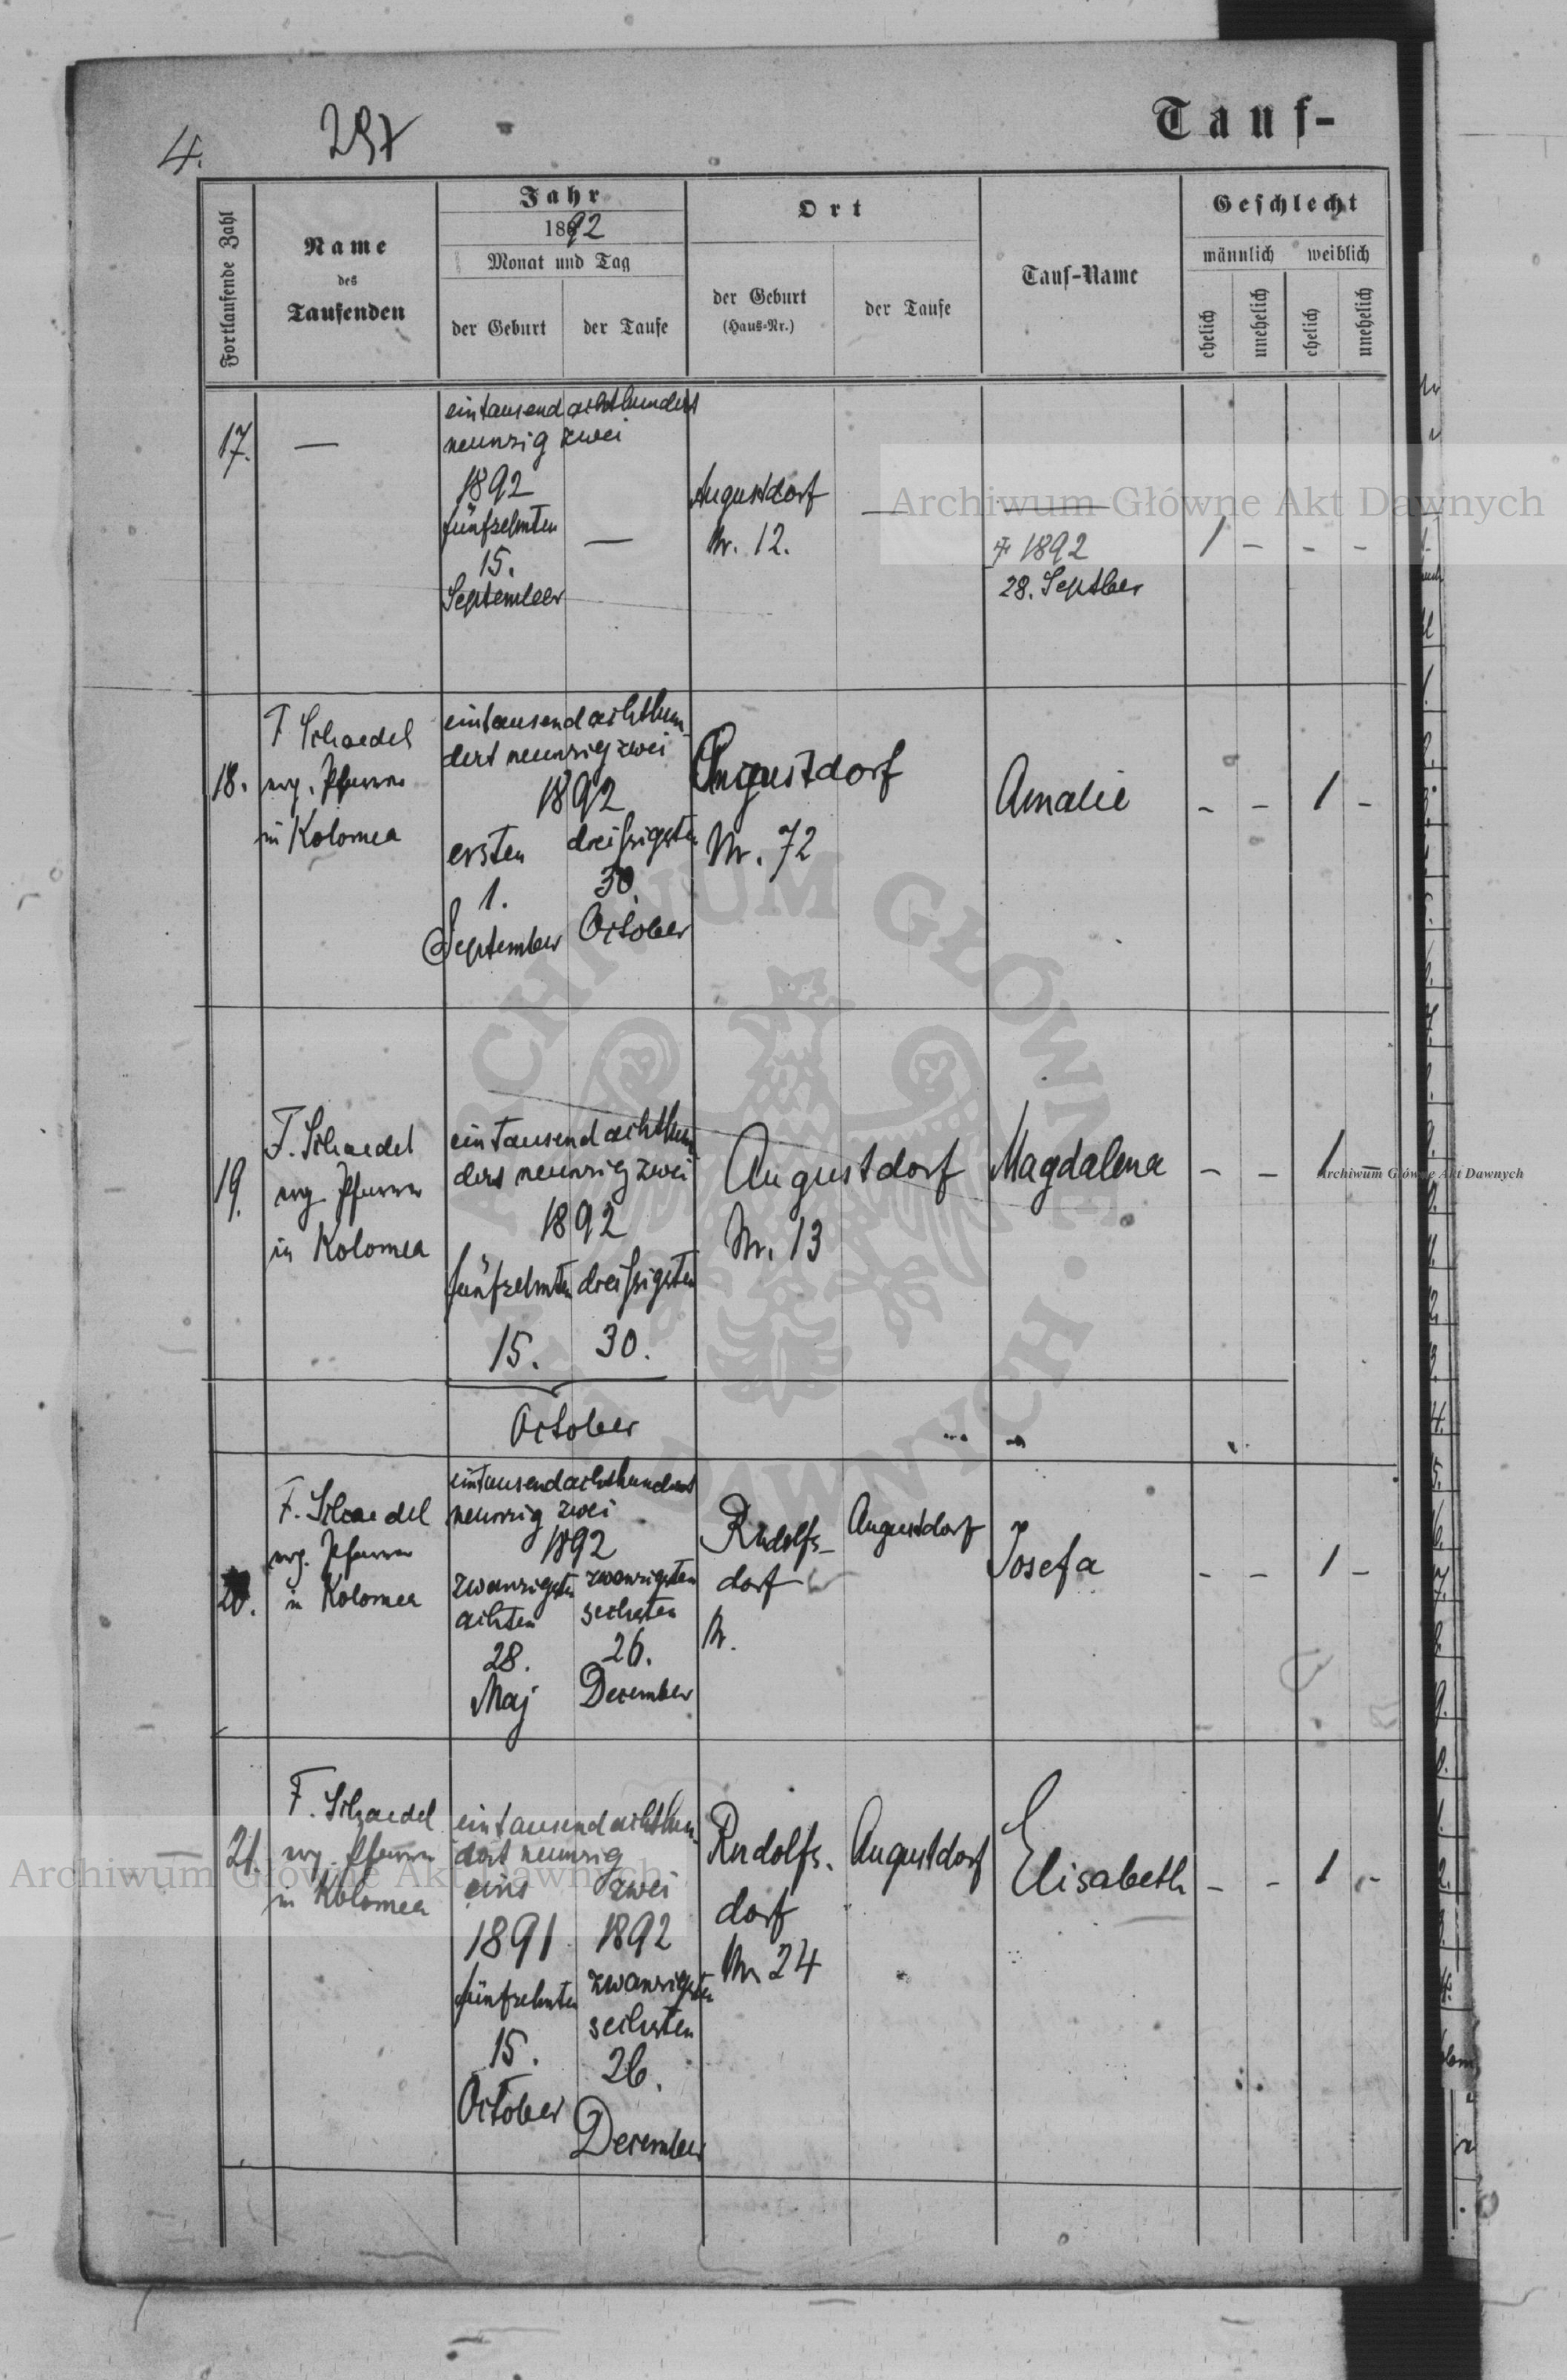 4.
297
Tauf-
Fortlaufende Zahl
Name
des
Taufenden
Jahr
1892
Monat und Tag
der Geburt
der Taufe
Ort
der Geburt
(Haus-Nr.)
der Taufe
Tauf-Name
Geschlecht
männlich
weiblich
ehelich
unehelich
ehelich
unehelich
17.
—
eintausend achthundert
neunzig zwei
1892
fünfzehnten
15.
September
—
Augustdorf
Nr. 12.
—
—
† 1892
28. Septber
1 - - -
18.
F Schaedel
evg. Pfarrer
in Kolomea
eintausend achthun-
dert neunzig zwei
1892
ersten
1.
September
dreißigsten
30.
October
Augustdorf
Nr. 72
Amalie
- - 1 -
19.
F. Schaedel
evg. Pfarrer
in Kolomea
eintausend achthun
dert neunzig zwei
1892
fünfzehnten dreißigsten
15. 30.
October
Augustdorf
Nr. 13
Magdalena
- - 1 -
20.
F. Schaedel
evg. Pfarrer
in Kolomea
eintausend achthundert
neunzig zwei
1892
zwanzigsten
achten
28.
Maj
zwanzigsten
sechsten
26.
December
Rudolfs-
dorf
Nr.
Augustdorf
Josefa
- - 1 -
21.
F. Schaedel
evg. Pfarrer
in Kolomea
eintausend achthun-
dert neunzig
eins zwei
1891 1892
fünfzehnten
15.
October
zwanzigsten
sechsten
26.
December
Rudolfs-
dorf
Nr 24
Augustdorf
Elisabeth
- - 1 -
Archiwum Główne Akt Dawnych
Archiwum Główne Akt Dawnych
Archiwum Główne Akt Dawnych
ARCHIWUM GŁÓWNE AKT DAWNYCH